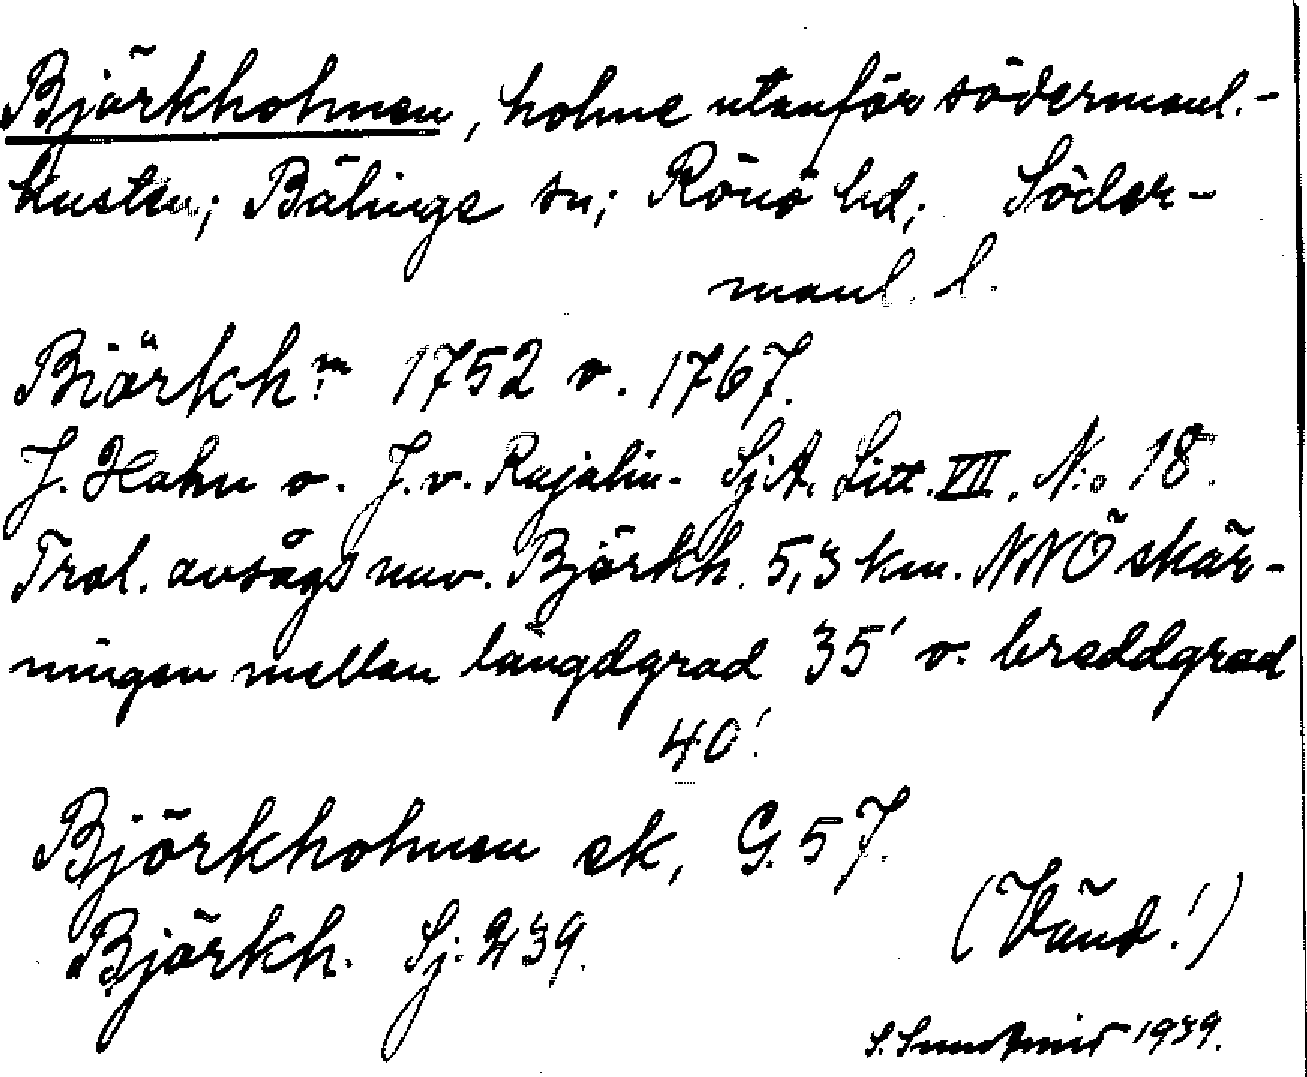 Björkholmen, holme utanför södermanl.-
kusten; Bälinge sn; Rönö hd; Söder-
manl. l.
Biörkhm 1752 o. 1767.
J. Hahn o. J. v. Rajalin. Sj.A. Litt. VII. N:o 18.
Trol. avsågs nuv. Björkh. 5,3 km. NNÖ skär-
ningen mellan längdgrad 35' o. breddgrad
40'.
Björkholmen ek, G. 57.
Björkh. Sj. 239.
(Vänd!)
S. 1939.